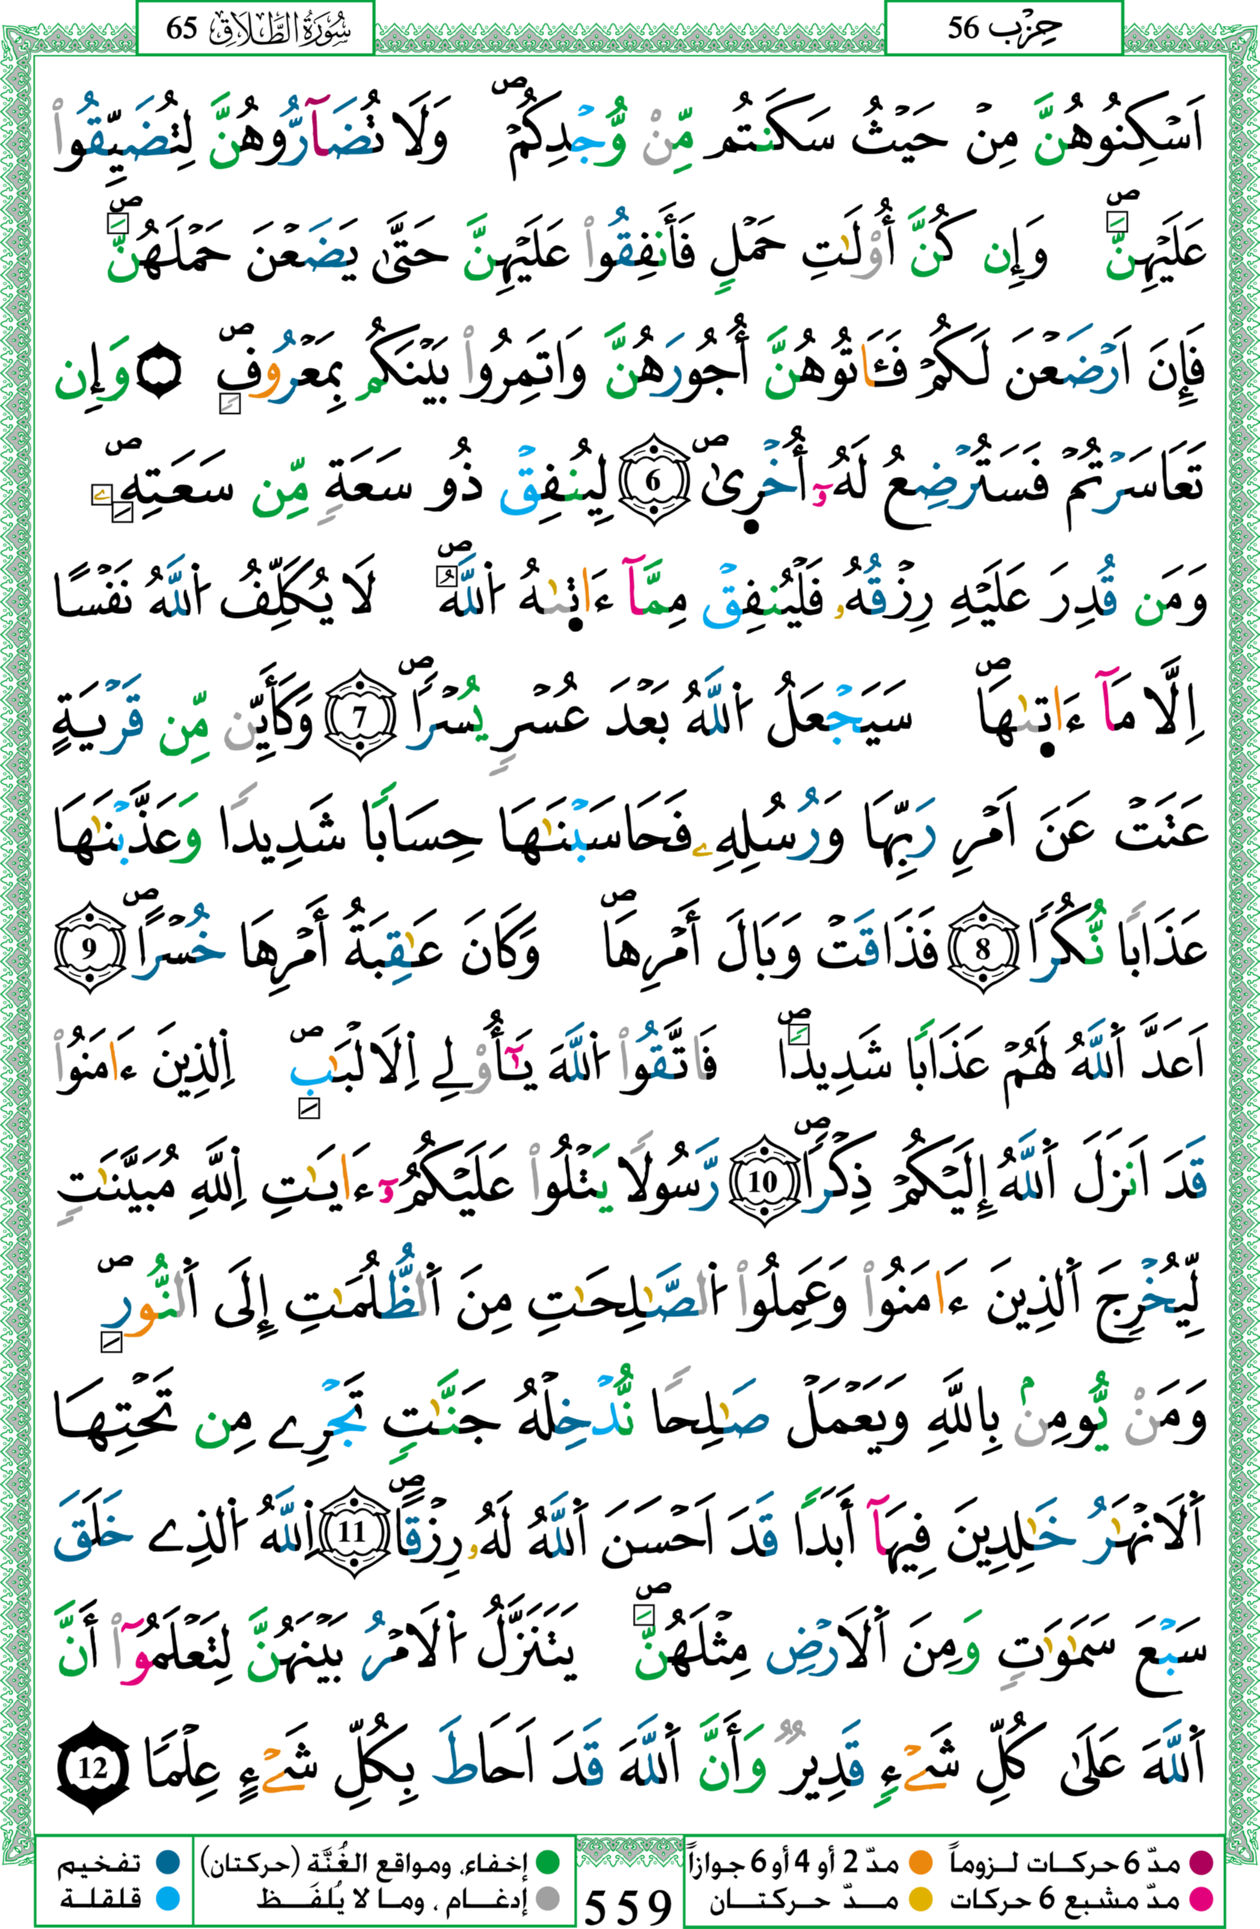 سُورَةُ الطَّلَاقِ 65
حِزْب 56
اَسْكِنُوهُنَّ مِنْ حَيْثُ سَكَنتُم مِّنْ وُّجْدِكُمْۖ وَلَا تُضَآرُّوهُنَّ لِتُضَيِّقُواْ
عَلَيْهِنَّۖ وَإِن كُنَّ أُوْلَٰتِ حَمْلٍ فَأَنفِقُواْ عَلَيْهِنَّ حَتَّىٰ يَضَعْنَ حَمْلَهُنَّۖ
فَإِنَ اَرْضَعْنَ لَكُمْ فَـَٔاتُوهُنَّ أُجُورَهُنَّ وَاتَمِرُواْ بَيْنَكُم بِمَعْرُوفٍۖ ۞ وَإِن
تَعَاسَرْتُمْ فَسَتُرْضِعُ لَهُۥٓ أُخْر۪ىٰۖ 6 لِيُنفِقْ ذُو سَعَةٍ مِّن سَعَتِهِۦۖ
وَمَن قُدِرَ عَلَيْهِ رِزْقُهُۥ فَلْيُنفِقْ مِمَّآ ءَات۪ىٰهُ اُللَّهُۖ لَا يُكَلِّفُ اُللَّهُ نَفْسًا
اِلَّا مَآ ءَات۪ىٰهَاۖ سَيَجْعَلُ اُللَّهُ بَعْدَ عُسْرٍ يُسْرًاۖ 7 وَكَأَيِّن مِّن قَرْيَةٍ
عَتَتْ عَنَ اَمْرِ رَبِّهَا وَرُسُلِهِۦ فَحَاسَبْنَٰهَا حِسَابًا شَدِيدًا وَعَذَّبْنَٰهَا
عَذَابًا نُّكُرًا 8 فَذَاقَتْ وَبَالَ أَمْرِهَاۖ وَكَانَ عَٰقِبَةُ أَمْرِهَا خُسْرًاۖ 9
اَعَدَّ اَللَّهُ لَهُمْ عَذَابًا شَدِيدًاۖ فَاتَّقُواْ اُللَّهَ يَٰٓأُوْلِے اِلَالْبَٰبِۖ اِلذِينَ ءَامَنُواْ
قَدَ اَنزَلَ اَللَّهُ إِلَيْكُمْ ذِكْرًاۖ 10 رَّسُولًا يَتْلُواْ عَلَيْكُمُۥٓ ءَايَٰتِ اِللَّهِ مُبَيَّنَٰتٍ
لِّيُخْرِجَ اَلذِينَ ءَامَنُواْ وَعَمِلُواْ اُلصَّٰلِحَٰتِ مِنَ اَلظُّلُمَٰتِ إِلَى اَلنُّورِۖ
وَمَنْ يُّومِنۢ بِاللَّهِ وَيَعْمَلْ صَٰلِحًا نُّدْخِلْهُ جَنَّٰتٍ تَجْرِے مِن تَحْتِهَا
اَلَانْهَٰرُ خَٰلِدِينَ فِيهَآ أَبَدًا قَدَ اَحْسَنَ اَللَّهُ لَهُۥ رِزْقًاۖ 11 اِللَّهُ اُلذِے خَلَقَ
سَبْعَ سَمَٰوَٰتٍ وَمِنَ اَلَارْضِ مِثْلَهُنَّۖ يَتَنَزَّلُ اُلَامْرُ بَيْنَهُنَّ لِتَعْلَمُوٓاْ أَنَّ
اَللَّهَ عَلَىٰ كُلِّ شَےْءٍ قَدِيرٌ وَأَنَّ اَللَّهَ قَدَ اَحَاطَ بِكُلِّ شَےْءٍ عِلْمًا 12
مدّ 6 حركات لـزوماً
مدّ 2 أو 4 أو 6 جوازاً
إخفاء، ومواقع الغُنَّة (حركتان)
تفخيم
مدّ مشبع 6 حركات
مـدّ حـركتـان
إدغـام ، ومـا لا يُلفَـظ
قلقلـة
559